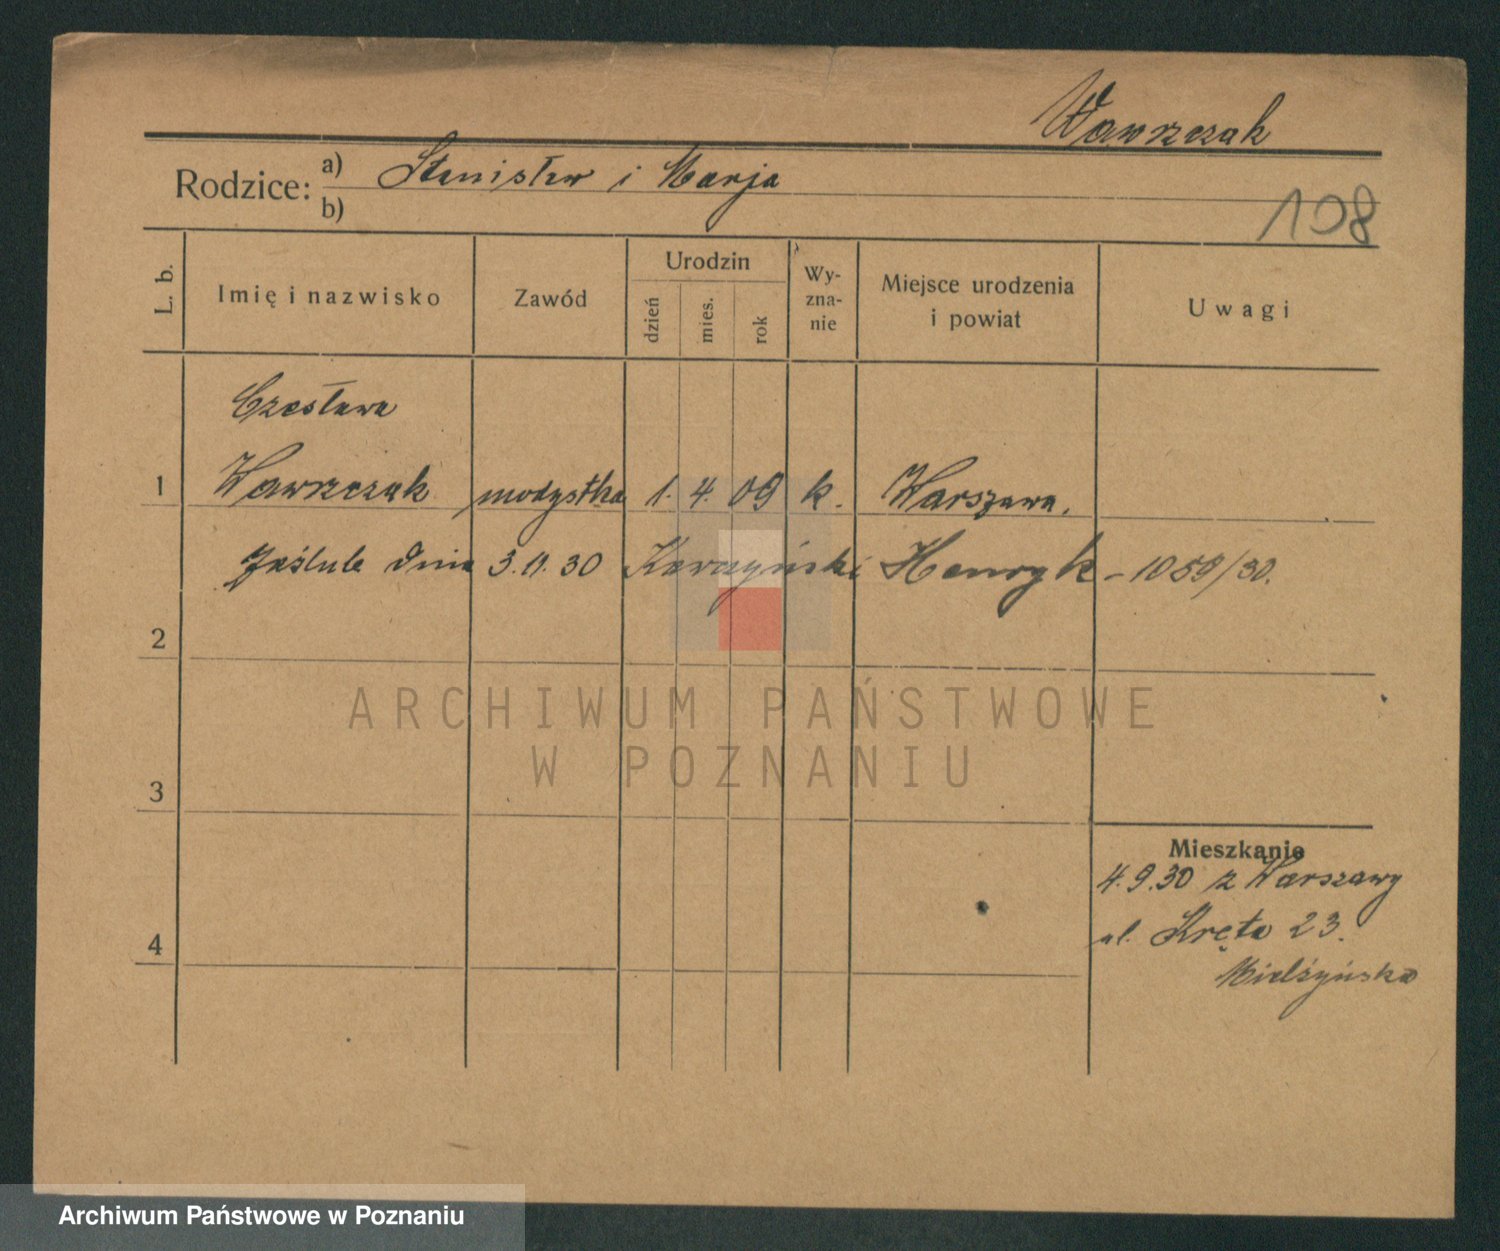 Wawrzczak
Rodzice: a) Stanisław i Marja
b)
108
L. b. Imię i nazwisko Zawód Urodzin dzień mies. rok Wy-zna-nie Miejsce urodzenia i powiat Uwagi
Czesława
1 Wawrzczak modystka 1. 4. 09 k. Warszawa.
Zaślub. dnia 3.11.30 Henryk - 1059/30.
2
ARCHIWUM PAŃSTWOWE
W POZNANIU
3
Mieszkanie
4.9.30 z Warszawy
4 ul. Kręta 23.
Mielżyńska
Archiwum Państwowe w Poznaniu